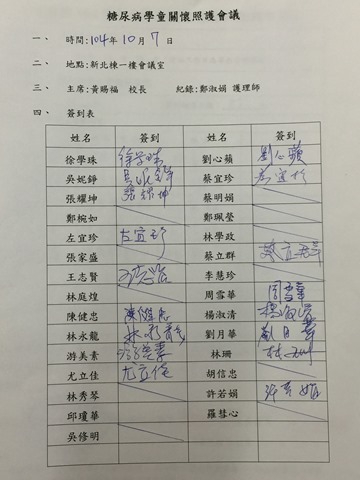 糖尿病學童關懷照護會議
一、 時間:104年10月7日
二、 地點:新北棟一樓會議室
三、 主席:黃賜福 校長 紀錄:鄭淑娟 護理師
四、 簽到表
姓名 簽到 姓名 簽到
徐學珠 徐學珠 劉心蘋 劉心蘋
吳妮錚 吳妮錚 蔡宜珍 蔡宜珍
張耀坤 張耀坤 蔡明娟
鄭椀如 鄭珮瑩
左宜珍 左宜珍 林學政
張家盛 蔡立群 蔡立群
王志賢 李慧珍
林庭煌 周雪華 周雪華
陳健忠 陳健忠 楊淑清 楊淑清
林永龍 林永龍 劉月華 劉月華
游美素 游美素 林珊 林珊
尤立佳 尤立佳 胡信忠
林秀琴 許若娟 許若娟
邱瓊華 羅彗心
吳修明